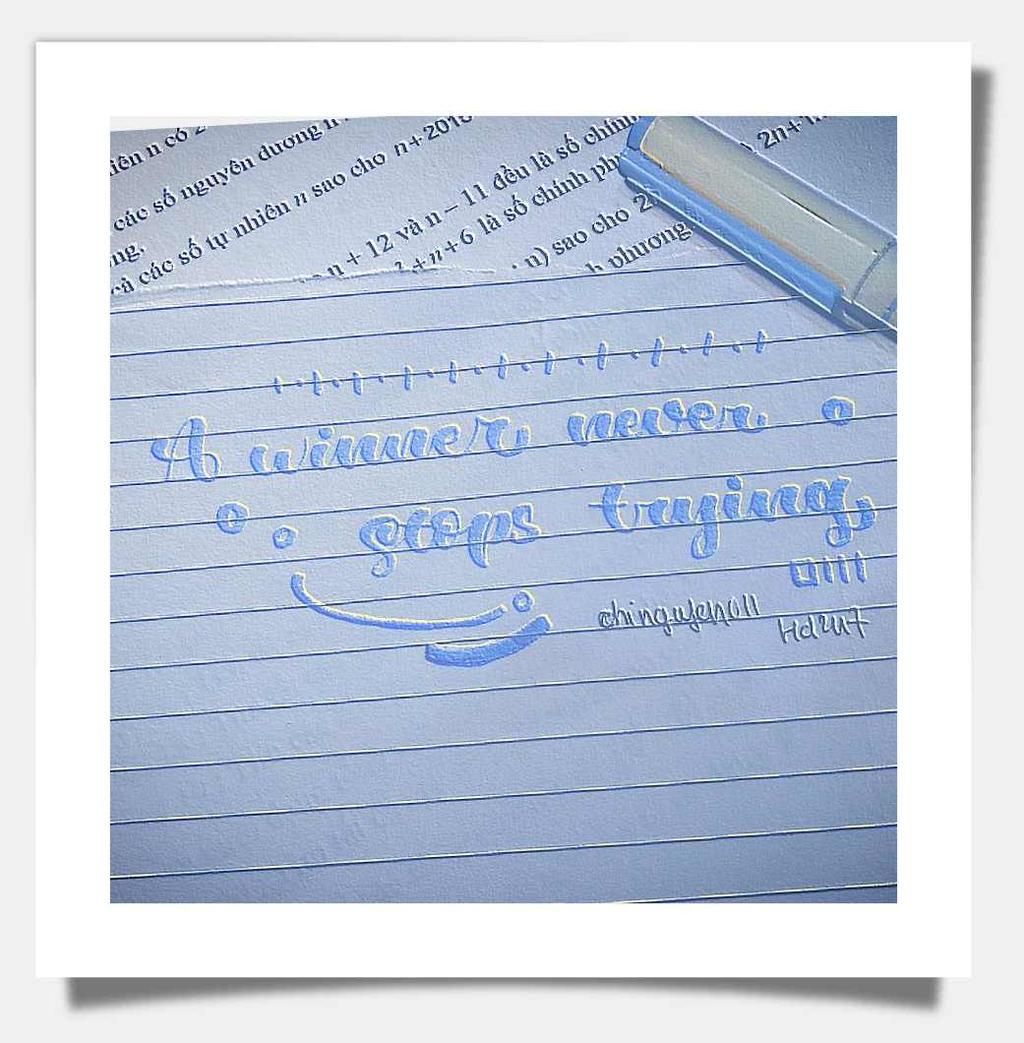 iên n có 2
các số nguyên dương n
ng.
cả các số tự nhiên n sao cho n+2010
n + 12 và n – 11 đều là số chính
+n+6 là số chính ph
n) sao cho 2
h phương
2n+1
A winner never
stops trying,